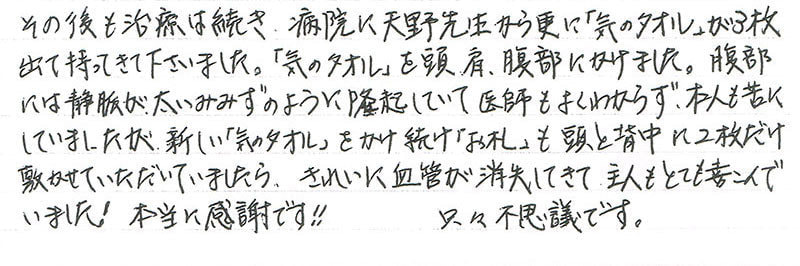 その後も治療は続き、病院に天野先生から更に「気のタオル」が3枚
出て持ってきて下さいました。「気のタオル」を頭、肩、腹部にかけました。腹部
には静脈が太いみみずのように隆起していて医師もよくわからず、本人も苦に
していましたが、新しい「気のタオル」をかけ続け「お札」も頭と背中に2枚だけ
敷かせていただいていましたら、きれいに血管が消失してきて主人もとても喜こんで
いました！本当に感謝です!! 只々不思議です。